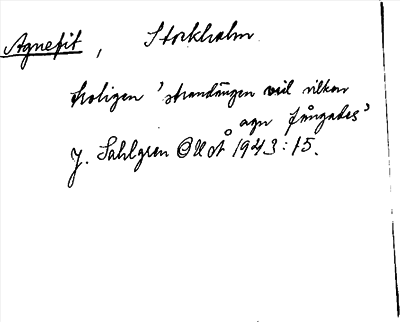 Agnefit, Stockholm.
troligen 'strandängen vid vilken
agn fångades'
J. Sahlgren OUoÅ 1943:15.